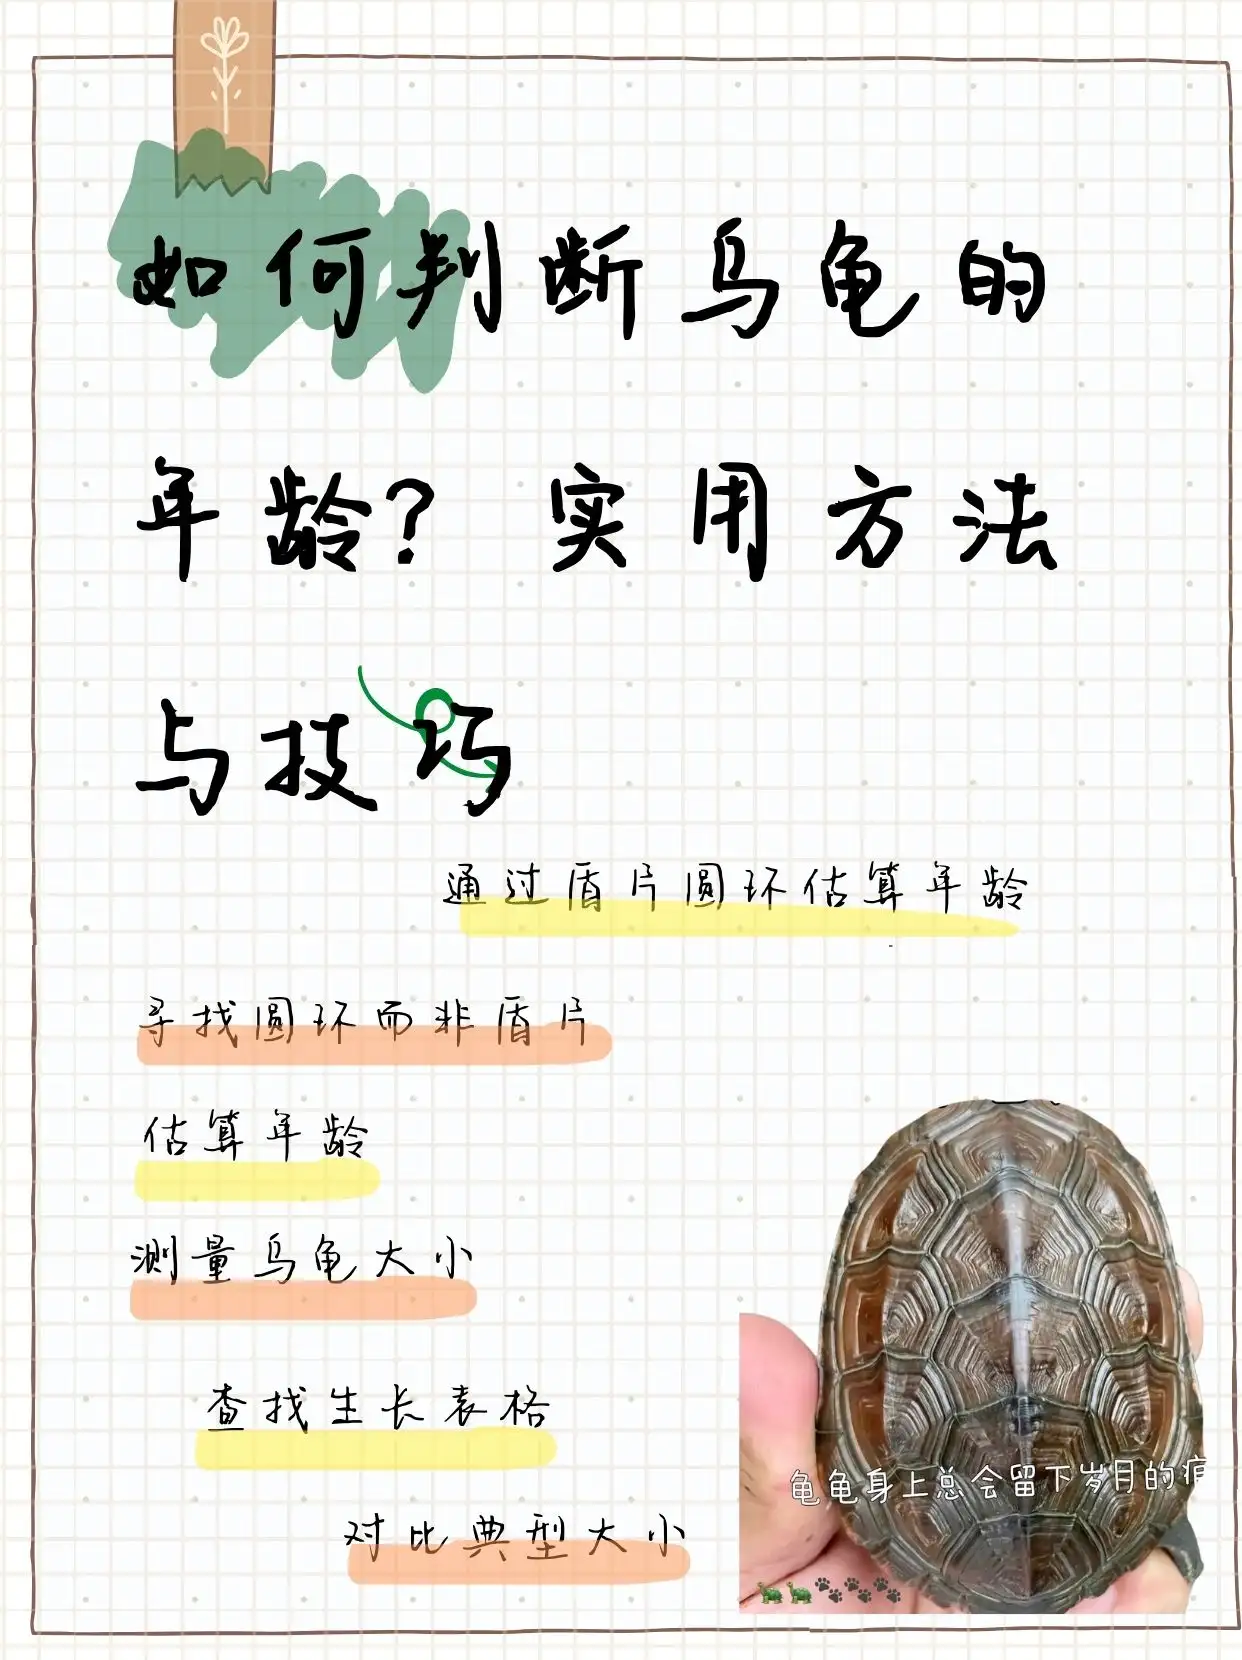 如何判断乌龟的
年龄？实用方法
与技巧
通过盾片圆环估算年龄
寻找圆环而非盾片
估算年龄
测量乌龟大小
查找生长表格
对比典型大小
龟龟身上总会留下岁月的